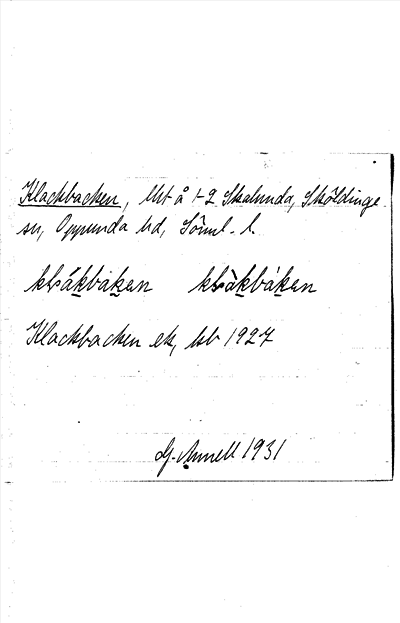 Klackbacken, lht å 1-2 Skalunda, Sköldinge
sn, Oppunda hd, Söml. l.
klàkbàkan klàkbákan
Klackbacken ek, hb 1927
G. Annell 1931